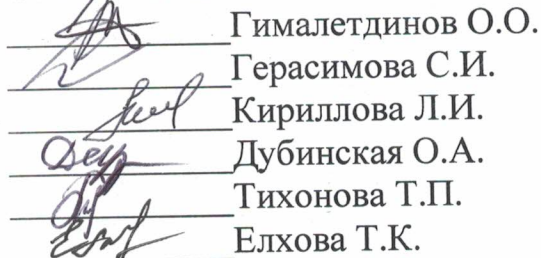 Гималетдинов О.О.
Герасимова С.И.
Кириллова Л.И.
Дубинская О.А.
Тихонова Т.П.
Елхова Т.К.